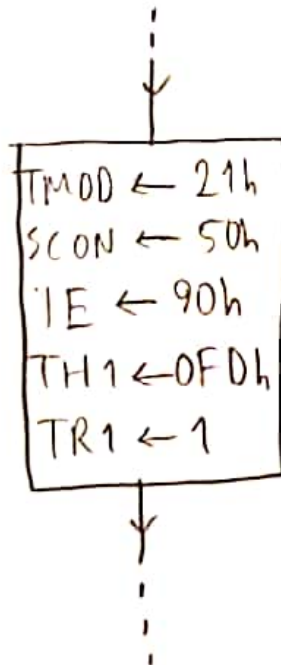 TMOD ← 21h
SCON ← 50h
IE ← 90h
TH1 ← 0FDh
TR1 ← 1